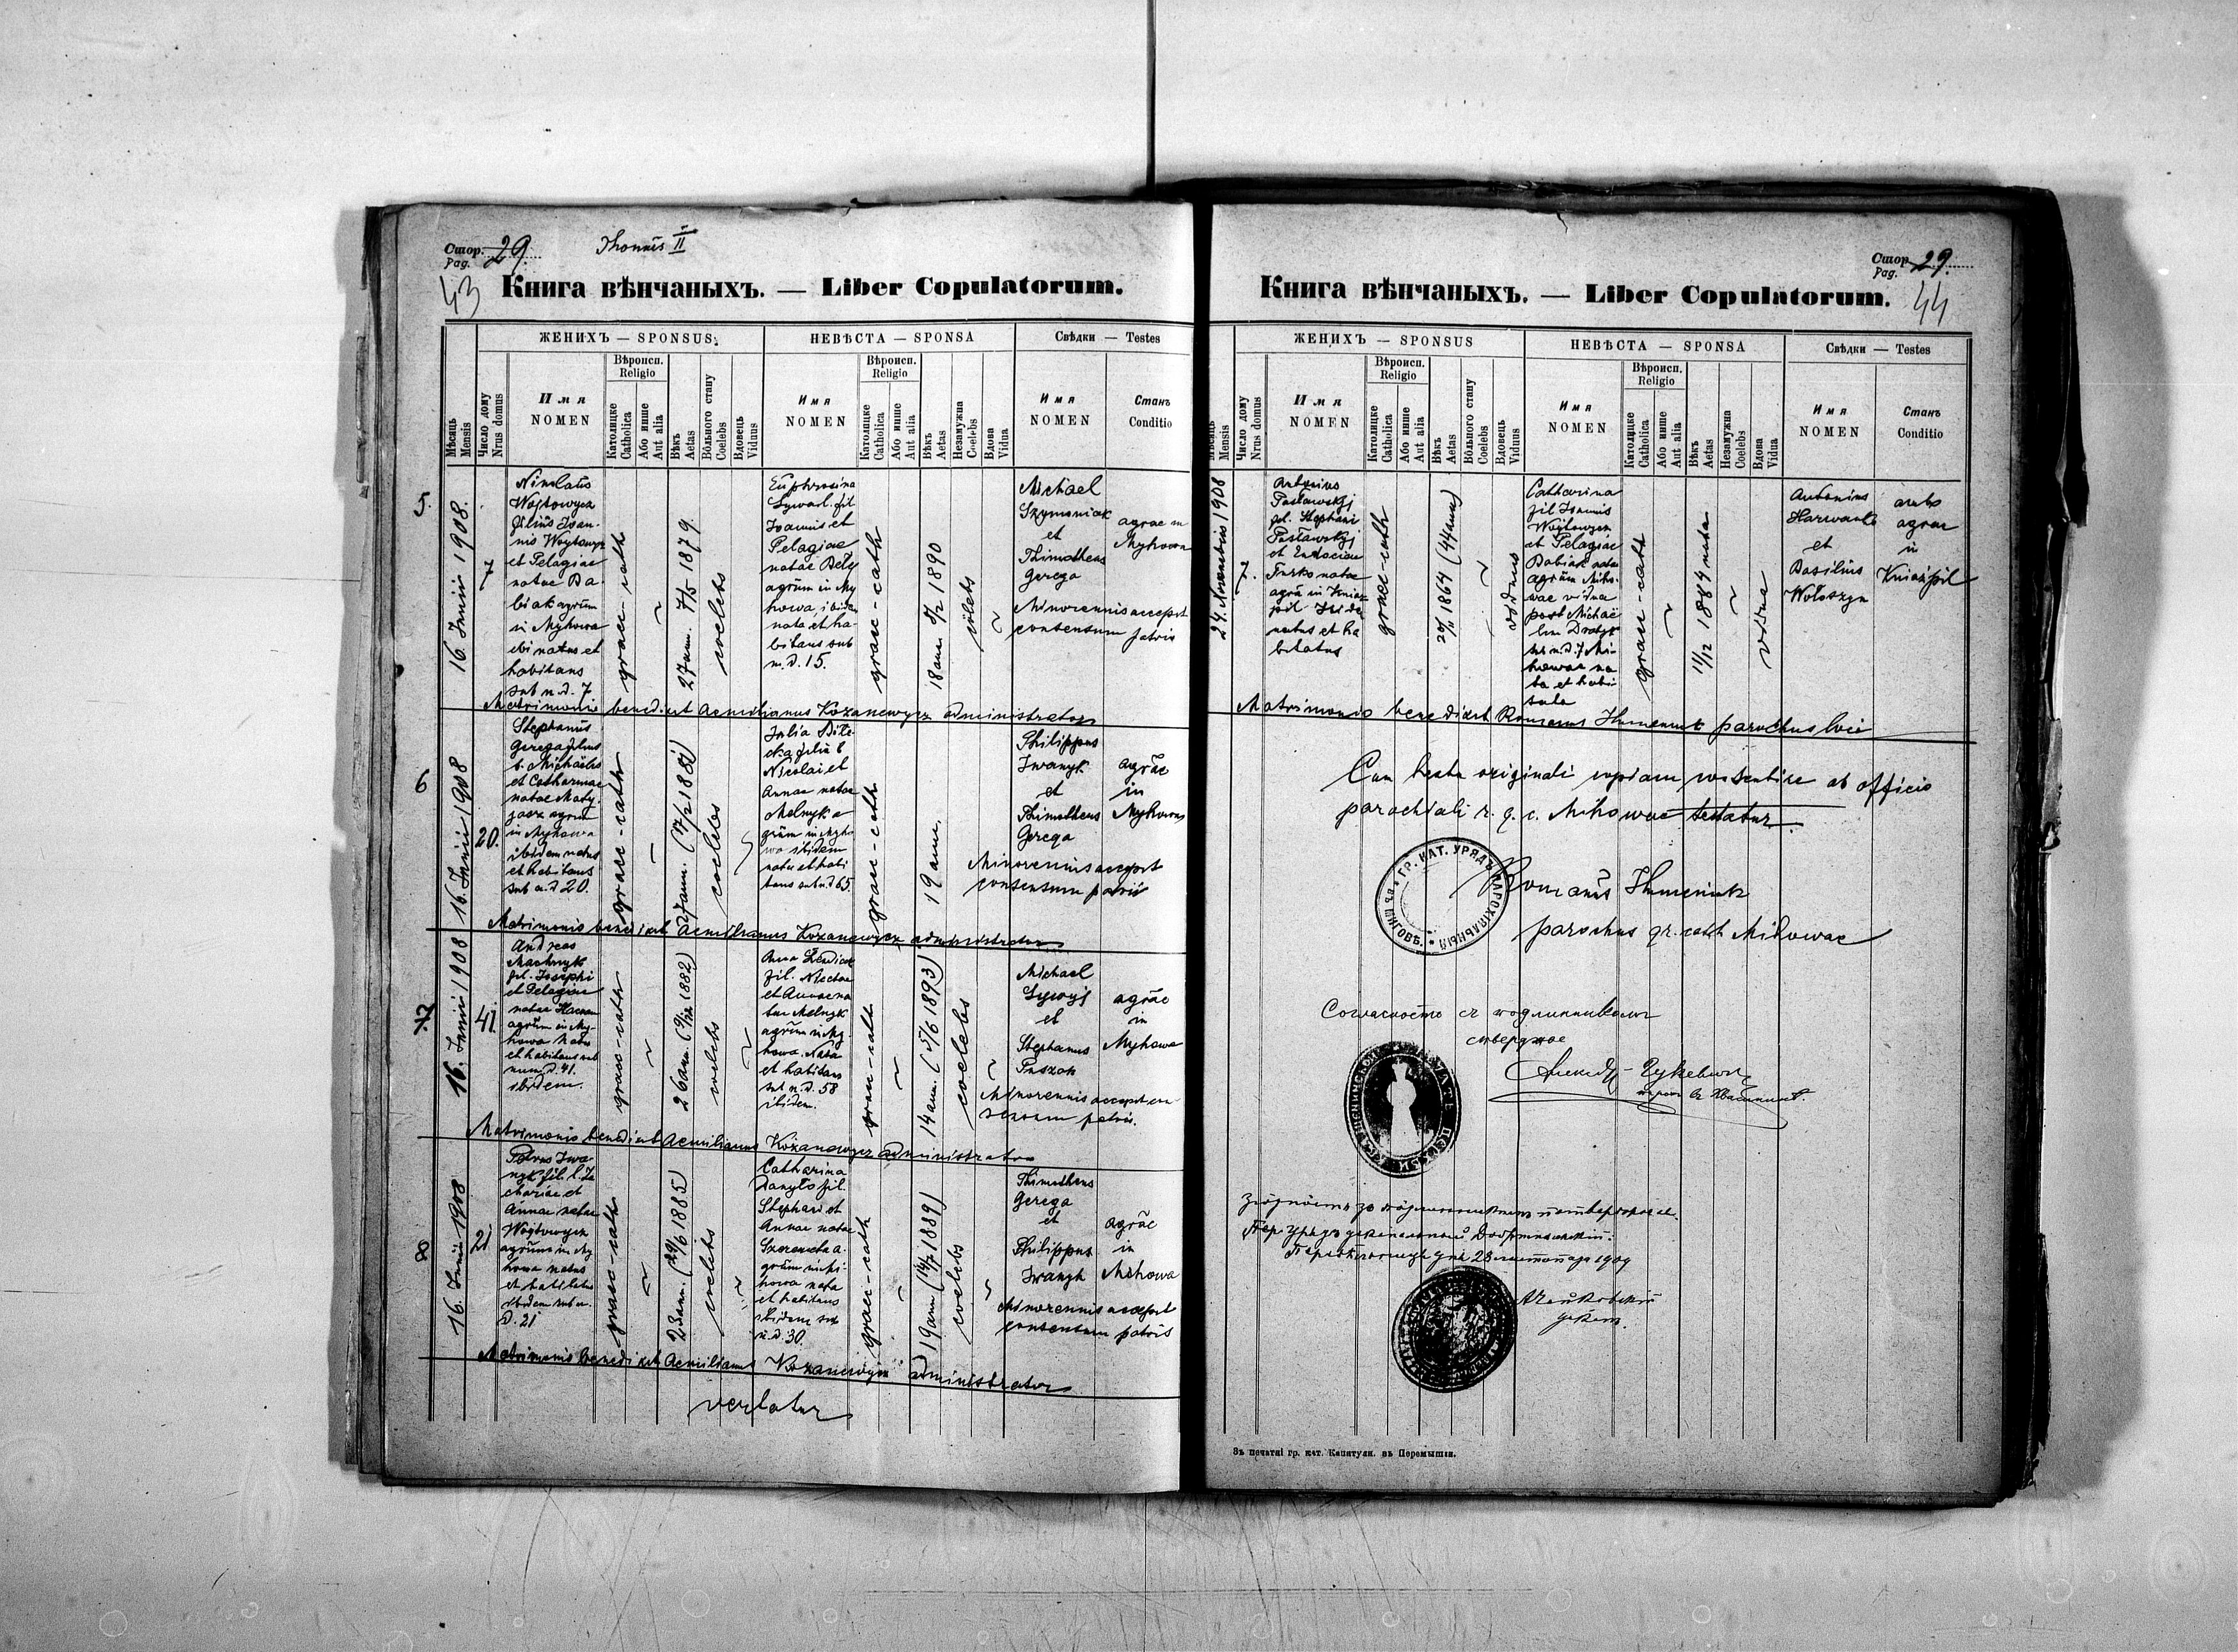 Стор. 29.
Pag.
43
Книга вѣнчаныхъ. — Liber Copulatorum.
ЖЕНИХЪ — SPONSUS.
НЕВѢСТА — SPONSA
Свѣдки — Testes
Мѣсяць
Mensis
Число дому
Nrus domus
Имя
NOMEN
Вѣроисп.
Religio
Католицке
Catholica
Або инше
Aut alia
Вѣкъ
Aetas
Вольного стану
Coelebs
Вдовець
Viduus
Имя
NOMEN
Вѣроисп.
Religio
Католицке
Catholica
Або инше
Aut alia
Вѣкъ
Aetas
Незамужна
Coelebs
Вдова
Vidua
Имя
NOMEN
Станъ
Conditio
5.
16. Junii 1908.
7
Nicolaus
Woytowycz
filius Joan-
nis Woytowycz
et Pelagiae
natae Ba-
biak agrum
in Mykowa
ibi natus et
habitans
sub n.d. 7
graec-cath
27 ann. 7/5 1879.
coelebs
Euphrosina
fil
Joannis et
Pelagiae
natae
agrum in My
howa, ibidem
nata et ha-
bitans sub
n.d. 15.
graec-cath
18 ann. 1890
coelebs
Michael
Szymaniak
et
Thimotheus
Gerega
agrae in
Mykowa
Minorennis accepit
consensum patris
Matrimonio benedixit Aemilianus Kozanewycz administrator
6
16. Junii 1908
20.
Stephanus
Gerega filius
b. Michaelis
et Catharinae
natae
agrum
in Mykowa
ibidem natus
et habitans
sub n.d 20.
graec-cath
27 ann.
coelebs
Julia
filia b
Nicolai et
Annae natae
Melnyk a-
grum in Myho
wa ibidem
nata et habi
tans sub n.d 65.
graec-cath
19 ann.
Philippus
Iwanyk
et
Thimotheus
Gerega
agrae
in
Mykowa
Minorennis accepit
consensum patris
Matrimonio benedixit Aemilianus Kozanewycz administrator
7.
16. Junii 1908
41
Andreas
Machnyk
fil. Josephi
et Pelagiae
natae
agrum in My-
howa natus
et habitans sub
num. d. 41.
ibidem.
graeco-cath
26 ann. 1882)
coelebs
Anna
fil. Nicolai
et Annae na
tae Melnyk
agrum in My
howa. Nata
et habitans
sub n.d. 58
ibidem.
graec-cath
14 ann. (5/6 1893)
coelebs
Michael
et
Stephanus
Puszak
agrae
in
Mykowa
Minorennis accepit con
sensum patris.
Matrimonio benedixit Aemilianus Kozanewycz administrator
8
16. Junii 1908
21
Petrus Iwa-
nyk fil. b. Za
chariae et
Annae natae
Woytowycz
agrum in My
howa natus
et habitans
ibidem sub n.
d. 21
graeco-cath
23 ann. (29/6 1885)
coelebs
Catharina
Danyło fil.
Stephani et
Annae natae
a-
grum in Mi-
howa nata
et habitans
ibidem sub
n.d. 30.
graec-cath
19 ann (14/7 1889)
coelebs
Thimotheus
Gerega
et
Philippus
Iwanyk
agrae
in
Mihowa
Minorennis accepit
consensum patris
Matrimonio benedixit Aemilianus Kozanewycz administrator
vertatur
Стор. 29.
Pag.
44
Книга вѣнчаныхъ. — Liber Copulatorum.
ЖЕНИХЪ — SPONSUS
НЕВѢСТА — SPONSA
Свѣдки — Testes
Мѣсяць
Mensis
Число дому
Nrus domus
Имя
NOMEN
Вѣроисп.
Religio
Католицке
Catholica
Або инше
Aut alia
Вѣкъ
Aetas
Вольного стану
Coelebs
Вдовець
Viduus
Имя
NOMEN
Вѣроисп.
Religio
Католицке
Catholica
Або инше
Aut alia
Вѣкъ
Aetas
Незамужна
Coelebs
Вдова
Vidua
Имя
NOMEN
Станъ
Conditio
24. Novembris 1908
7.
Pasławskyj
fil. Stephani
Pasławskyj
et Eudociae
Turko natae
agrum in Kniaz
pil ibide
natus et ha
bitatus
graec-cath
20/11 1864 (44 ann)
viduus
Catharina
fil Joannis
Wojtowycz
et Pelagiae
Babiak natae
agrum Miho-
wae vidua
post Michae
lem
sub n.d. 7 Mi-
howae na
ta et habi
tata
graec-cath
11/12 1884 nata
vidua
Antonius
et
Basilius
Wołoszyn
ambo
agrae
in
Kniażpil
Matrimonio benedixit Romanus Humeniuk parochus loci
Cum textu originali copiam consentire ab officio
parochiali r. g. c. Mihowae testatur.
ГР. КАТ. УРЯДЪ ПАРОХІАЛЬНЫЙ
Romanus Humeniuk
parochus gr. cath Mihowae
Согласность съ подлинникомъ
стверджае
Пер. Урядъ деканальный Добромильскій.
28 листопада 1909
декан.
Зъ печатнѣ гр. кат. Капитулы. въ Перемышли.